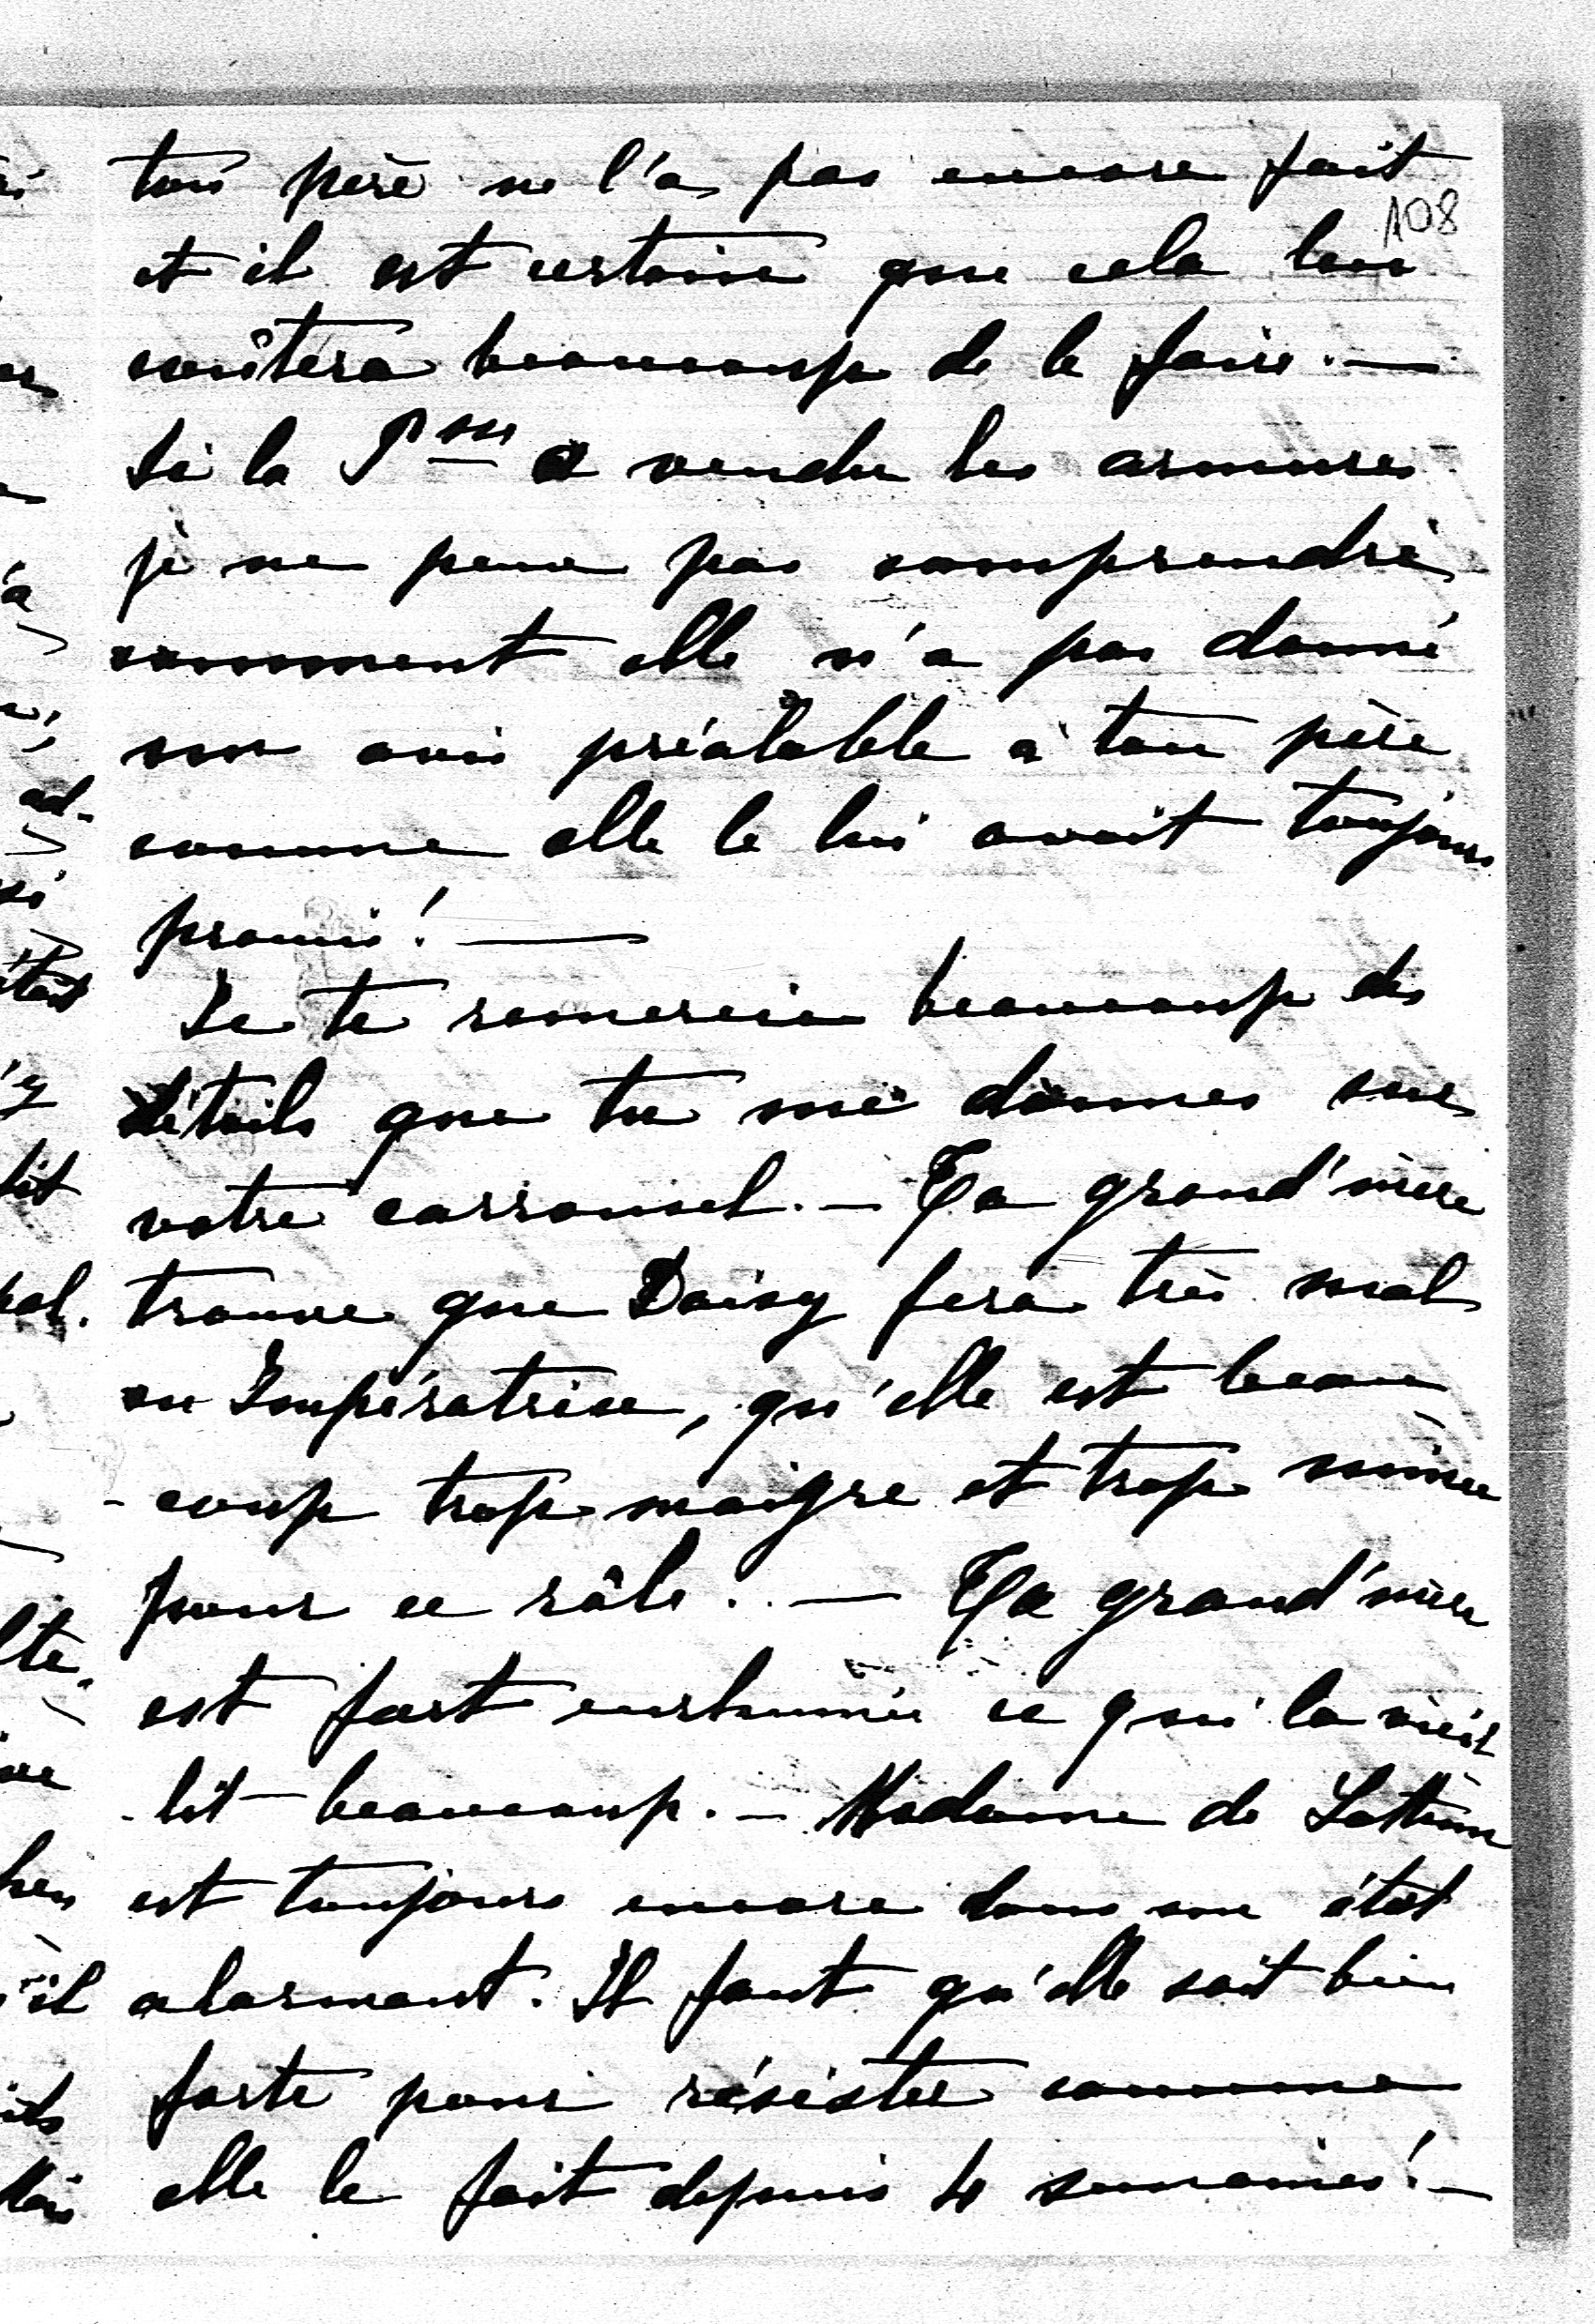 ton père ne l'a pas encore fait
108
et il est certain que cela leur
coûtera beaucoup de le faire. —
Si la Psse a vendu les armures
je ne peux pas comprendre
comment elle n'a pas donné
son avis préalable à ton père
comme elle le lui avait toujours
promis! —
Je te remercie beaucoup des
détails que tu me donnes sur
votre carrousel. — Ta grand'mère
trouve que Daisy fera très mal
en Impératrice, qu'elle est beau
-coup trop maigre et trop mince
pour ce rôle. — Ta grand'mère
est fort enrhumée ce qui la vieil
-lit beaucoup. — Madame de
est toujours encore dans son état
alarmant. Il faut qu'elle soit bien
forte pour résister comme
elle le fait depuis 4 semaines! —